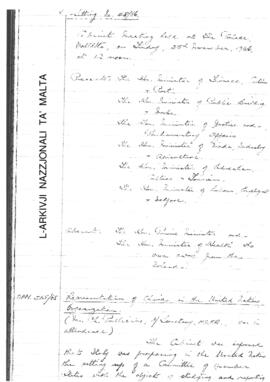 L-ARKIVJI NAZZJONALI TA' MALTA
Sitting No.
Cabinet Meeting held at the Palace
Valletta, on Friday, 25th November, 1966
at 12 noon.
Present: The Hon. Minister of Finance, Customs
& Port.
The Hon. Minister of Public Building
& Works
The Hon. Minister of Justice and
Parliamentary Affairs
The Hon. Minister of Trade, Industry
& Agriculture
The Hon. Minister of Education,
Culture & Tourism
The Hon. Minister of Labour, Employt
& Welfare.
Absent: The Hon. Prime Minister and
The Hon. Minister of Health who
were away from the
Island.
Representation of China in the United Nations
Organization
(Mr. , f/Secretary, was in
attendance)
The Cabinet was informed
that Italy was proposing in the United Nations
the setting up of a Committee of member
States with the object of studying and reporting